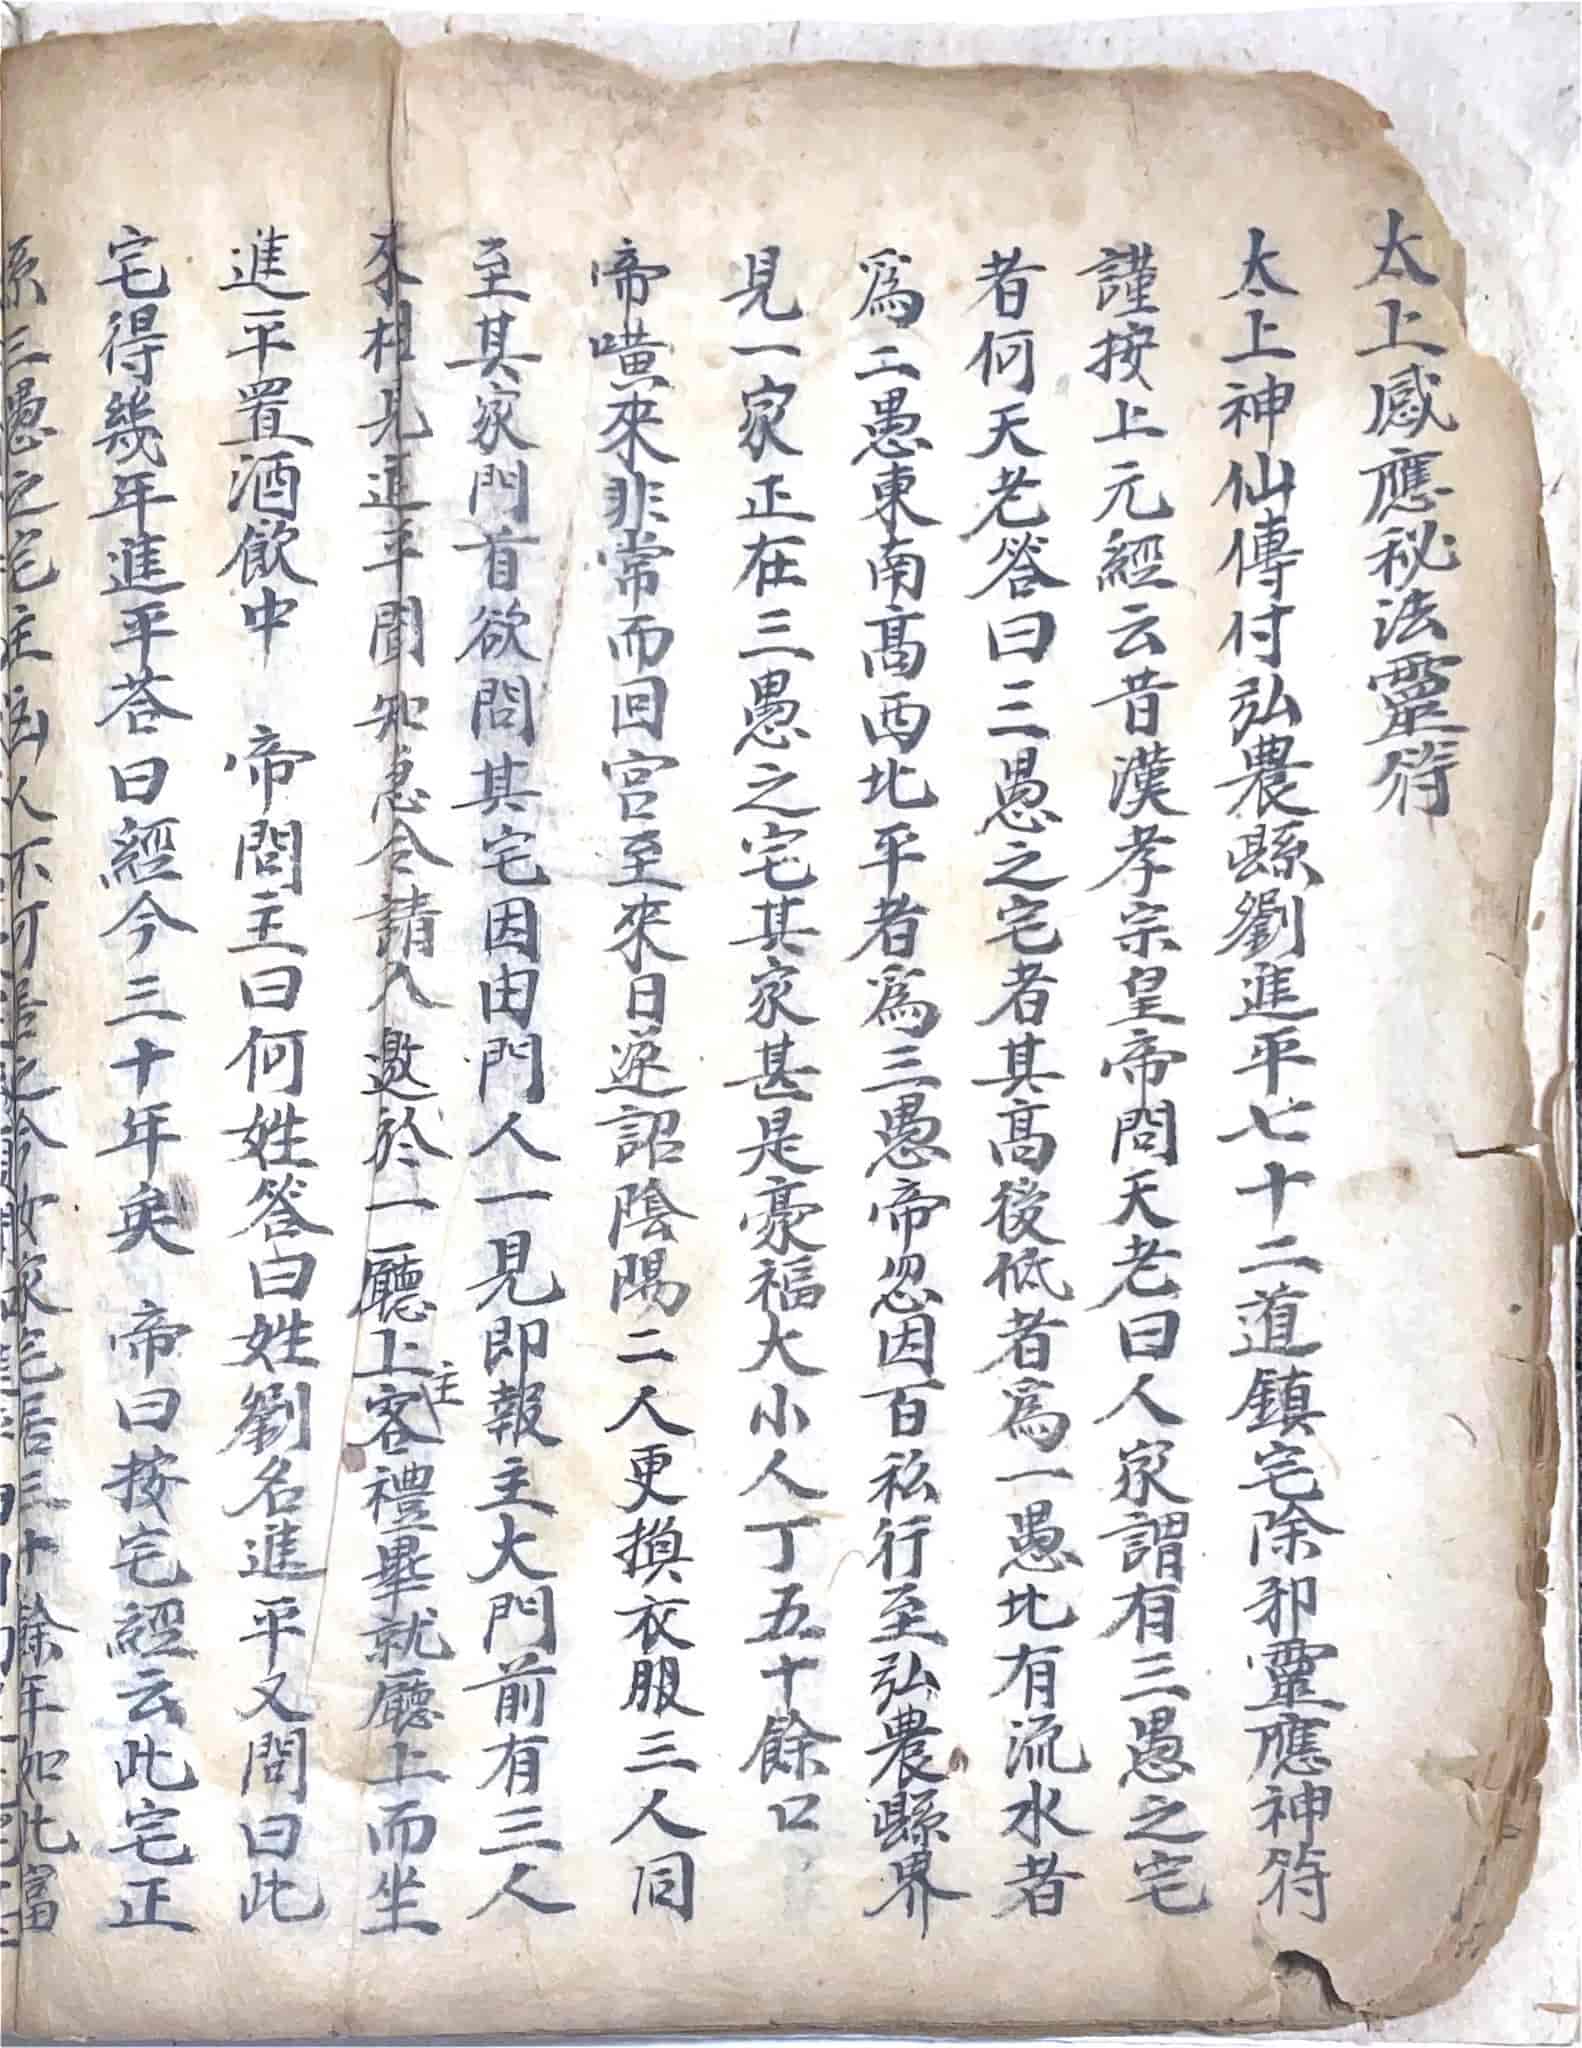 太上感應秘法靈符
太上神仙傳付弘農縣劉進平七十二道鎮宅除邪靈應神符
謹按上元經云昔漢孝宗皇帝問天老曰人家謂有三愚之宅
者何天老答曰三愚之宅者其高後低者爲一愚北有流水者
爲二愚東南高西北平者爲三愚帝忽因百私行至弘農縣界
見一家正在三愚之宅其家甚是豪福大小人丁五十餘口
帝嘆來非常而回宮至來日遂詔陰陽二人更換衣服三人同
至其家門首欲問其宅因由門人一見即報主大門前有三人
來相見進平聞知急令請入邀於一廳上客主禮畢就廳上而坐
進平置酒飲中 帝問主曰何姓答曰姓劉名進平又問曰此
宅得幾年進平答曰經今三十年矣 帝曰按宅經云此宅正
係三愚之宅主凶人不可居之今汝家宅居三十餘年如此富